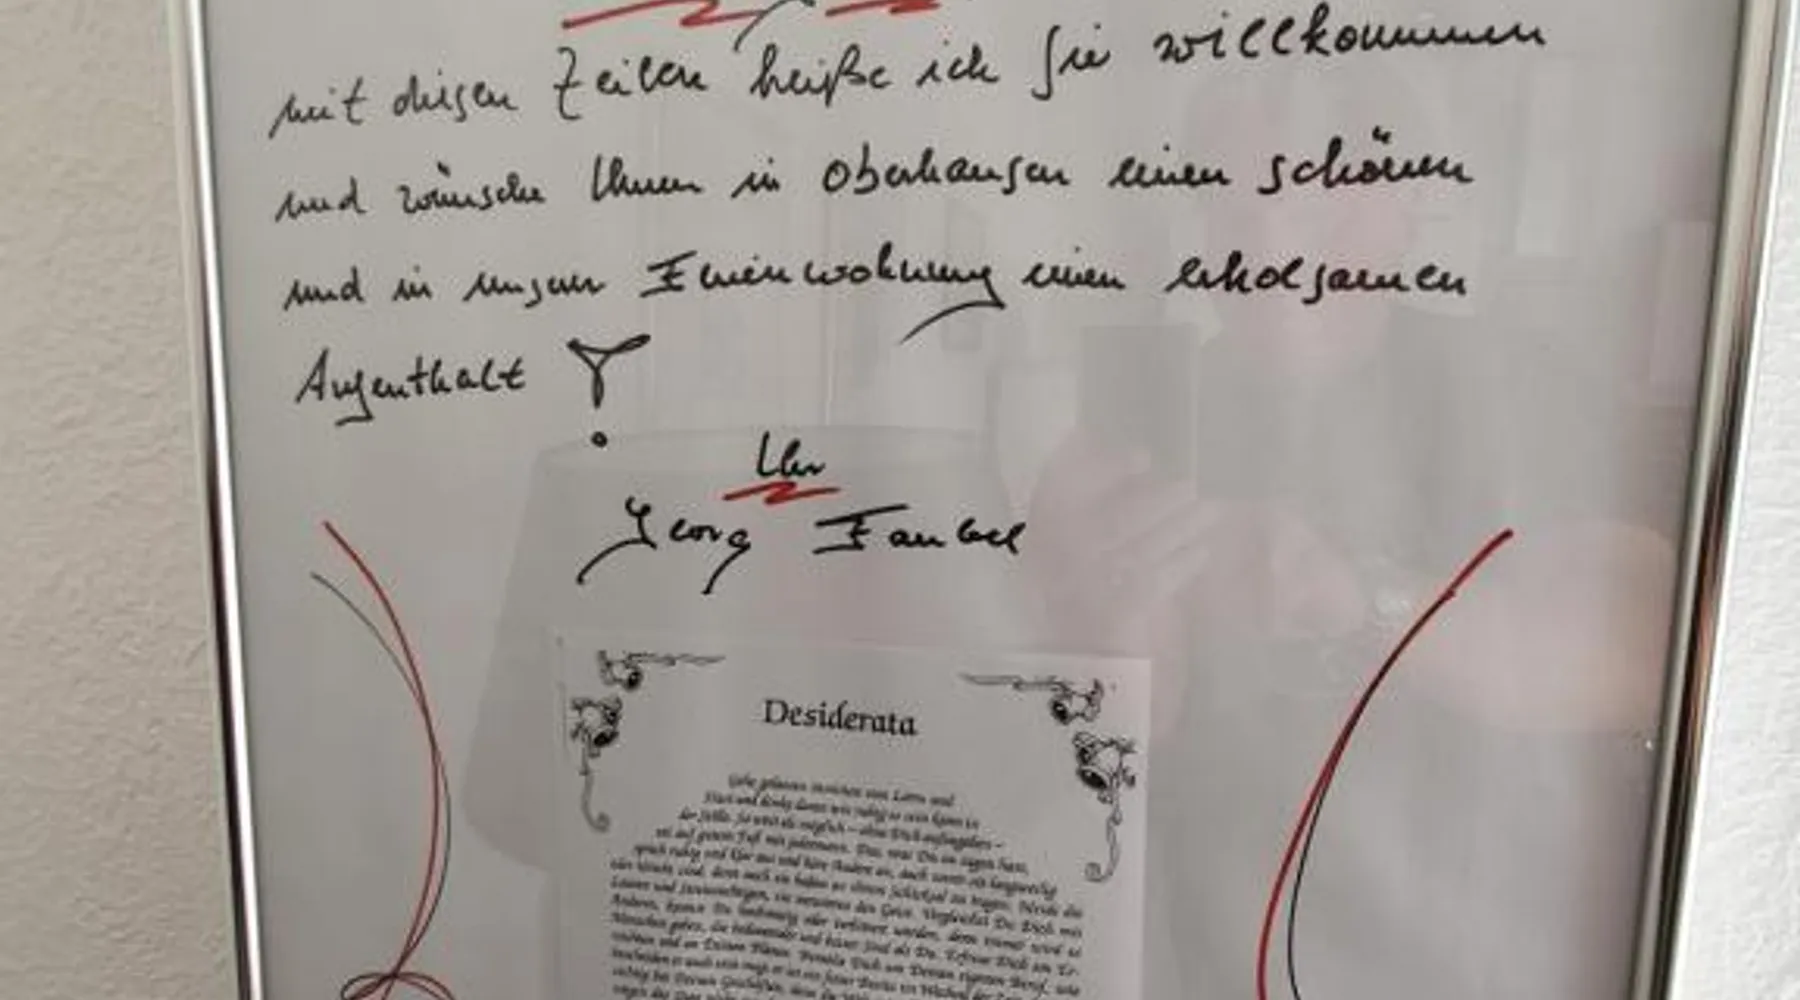 mit diesen Zeilen heiße ich Sie willkommen
und wünsche Ihnen in Oberhausen einen schönen
und in unserer Ferienwohnung einen erholsamen
Aufenthalt!
Ihr
Georg
Desiderata
Gehe gelassen inmitten von Lärm und
Hast und denke daran wie ruhig es sein kann in
der Stille. So weit als möglich – ohne Dich aufzugeben –
sei auf gutem Fuß mit jedermann. Das, was Du zu sagen hast,
sprich ruhig und klar aus und höre Andere an, auch wenn sie langweilig
oder töricht sind, denn auch sie haben an ihrem Schicksal zu tragen. Meide die
Lauten und Streitsüchtigen, sie verwirren den Geist. Vergleichst Du Dich mit
Anderen, kannst Du hochmütig oder verbittert werden, denn immer wird es
Menschen geben, die bedeutender und besser sind als Du. Erfreue Dich am Er-
reichten und an Deinen Plänen. Bemühe Dich um Deinen eigenen Beruf, wie
bescheiden er auch sein mag; er ist ein fester Besitz im Wechsel der